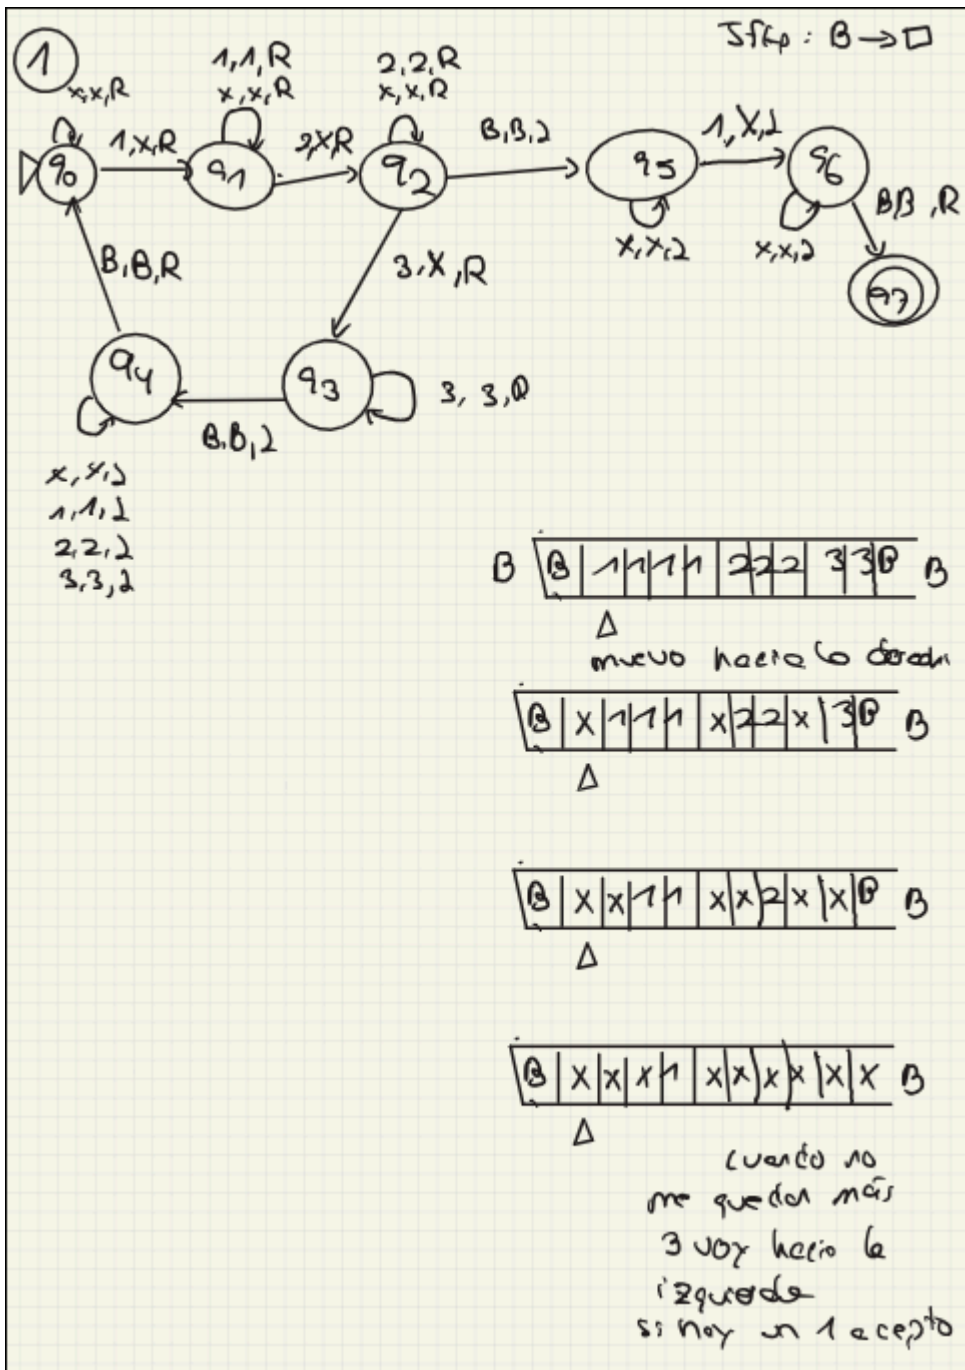 1
Jflap: B → □
x,x,R
1,1,R
x,x,R
2,2,R
x,x,R
q0
1,x,R
q1
2,x,R
q2
B,B,L
q5
1,x,L
q6
x,x,L
x,x,L
B,B,R
q7
B,B,R
3,x,R
q4
q3
3,3,R
B,B,L
x,x,L
1,1,L
2,2,L
3,3,L
B B 1 1 1 1 2 2 2 3 3 B B
muevo hacia la derecha
B x 1 1 1 x 2 2 x 3 B B
B x x 1 1 x x 2 x x B B
B x x x 1 x x x x x x B
cuando no
me quedan más
3 voy hacia la
izquierda
si hay un 1 acepto